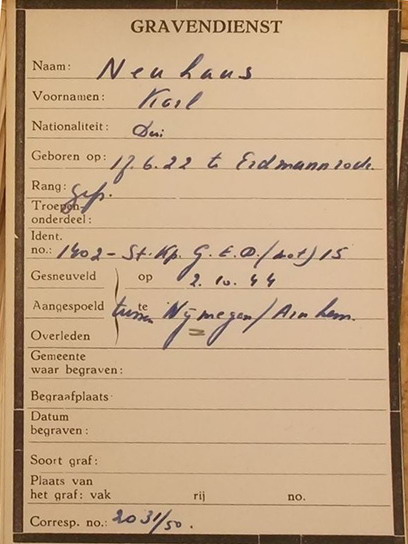 GRAVENDIENST
Naam: Neuhaus
Voornamen: Karl
Nationaliteit: Dui
Geboren op: 17.6.22 te Erdmannrode
Rang: Gefr.
Troepen-
onderdeel:
Ident.
no.: 1402 - St. Kp. G. E. D. (mot) 15
Gesneuveld op 2.10.44
Aangespoeld te tussen Nijmegen/Arnhem.
Overleden
Gemeente
waar begraven:
Begraafplaats
Datum
begraven:
Soort graf:
Plaats van
het graf: vak rij no.
Corresp. no.: 2031/50.